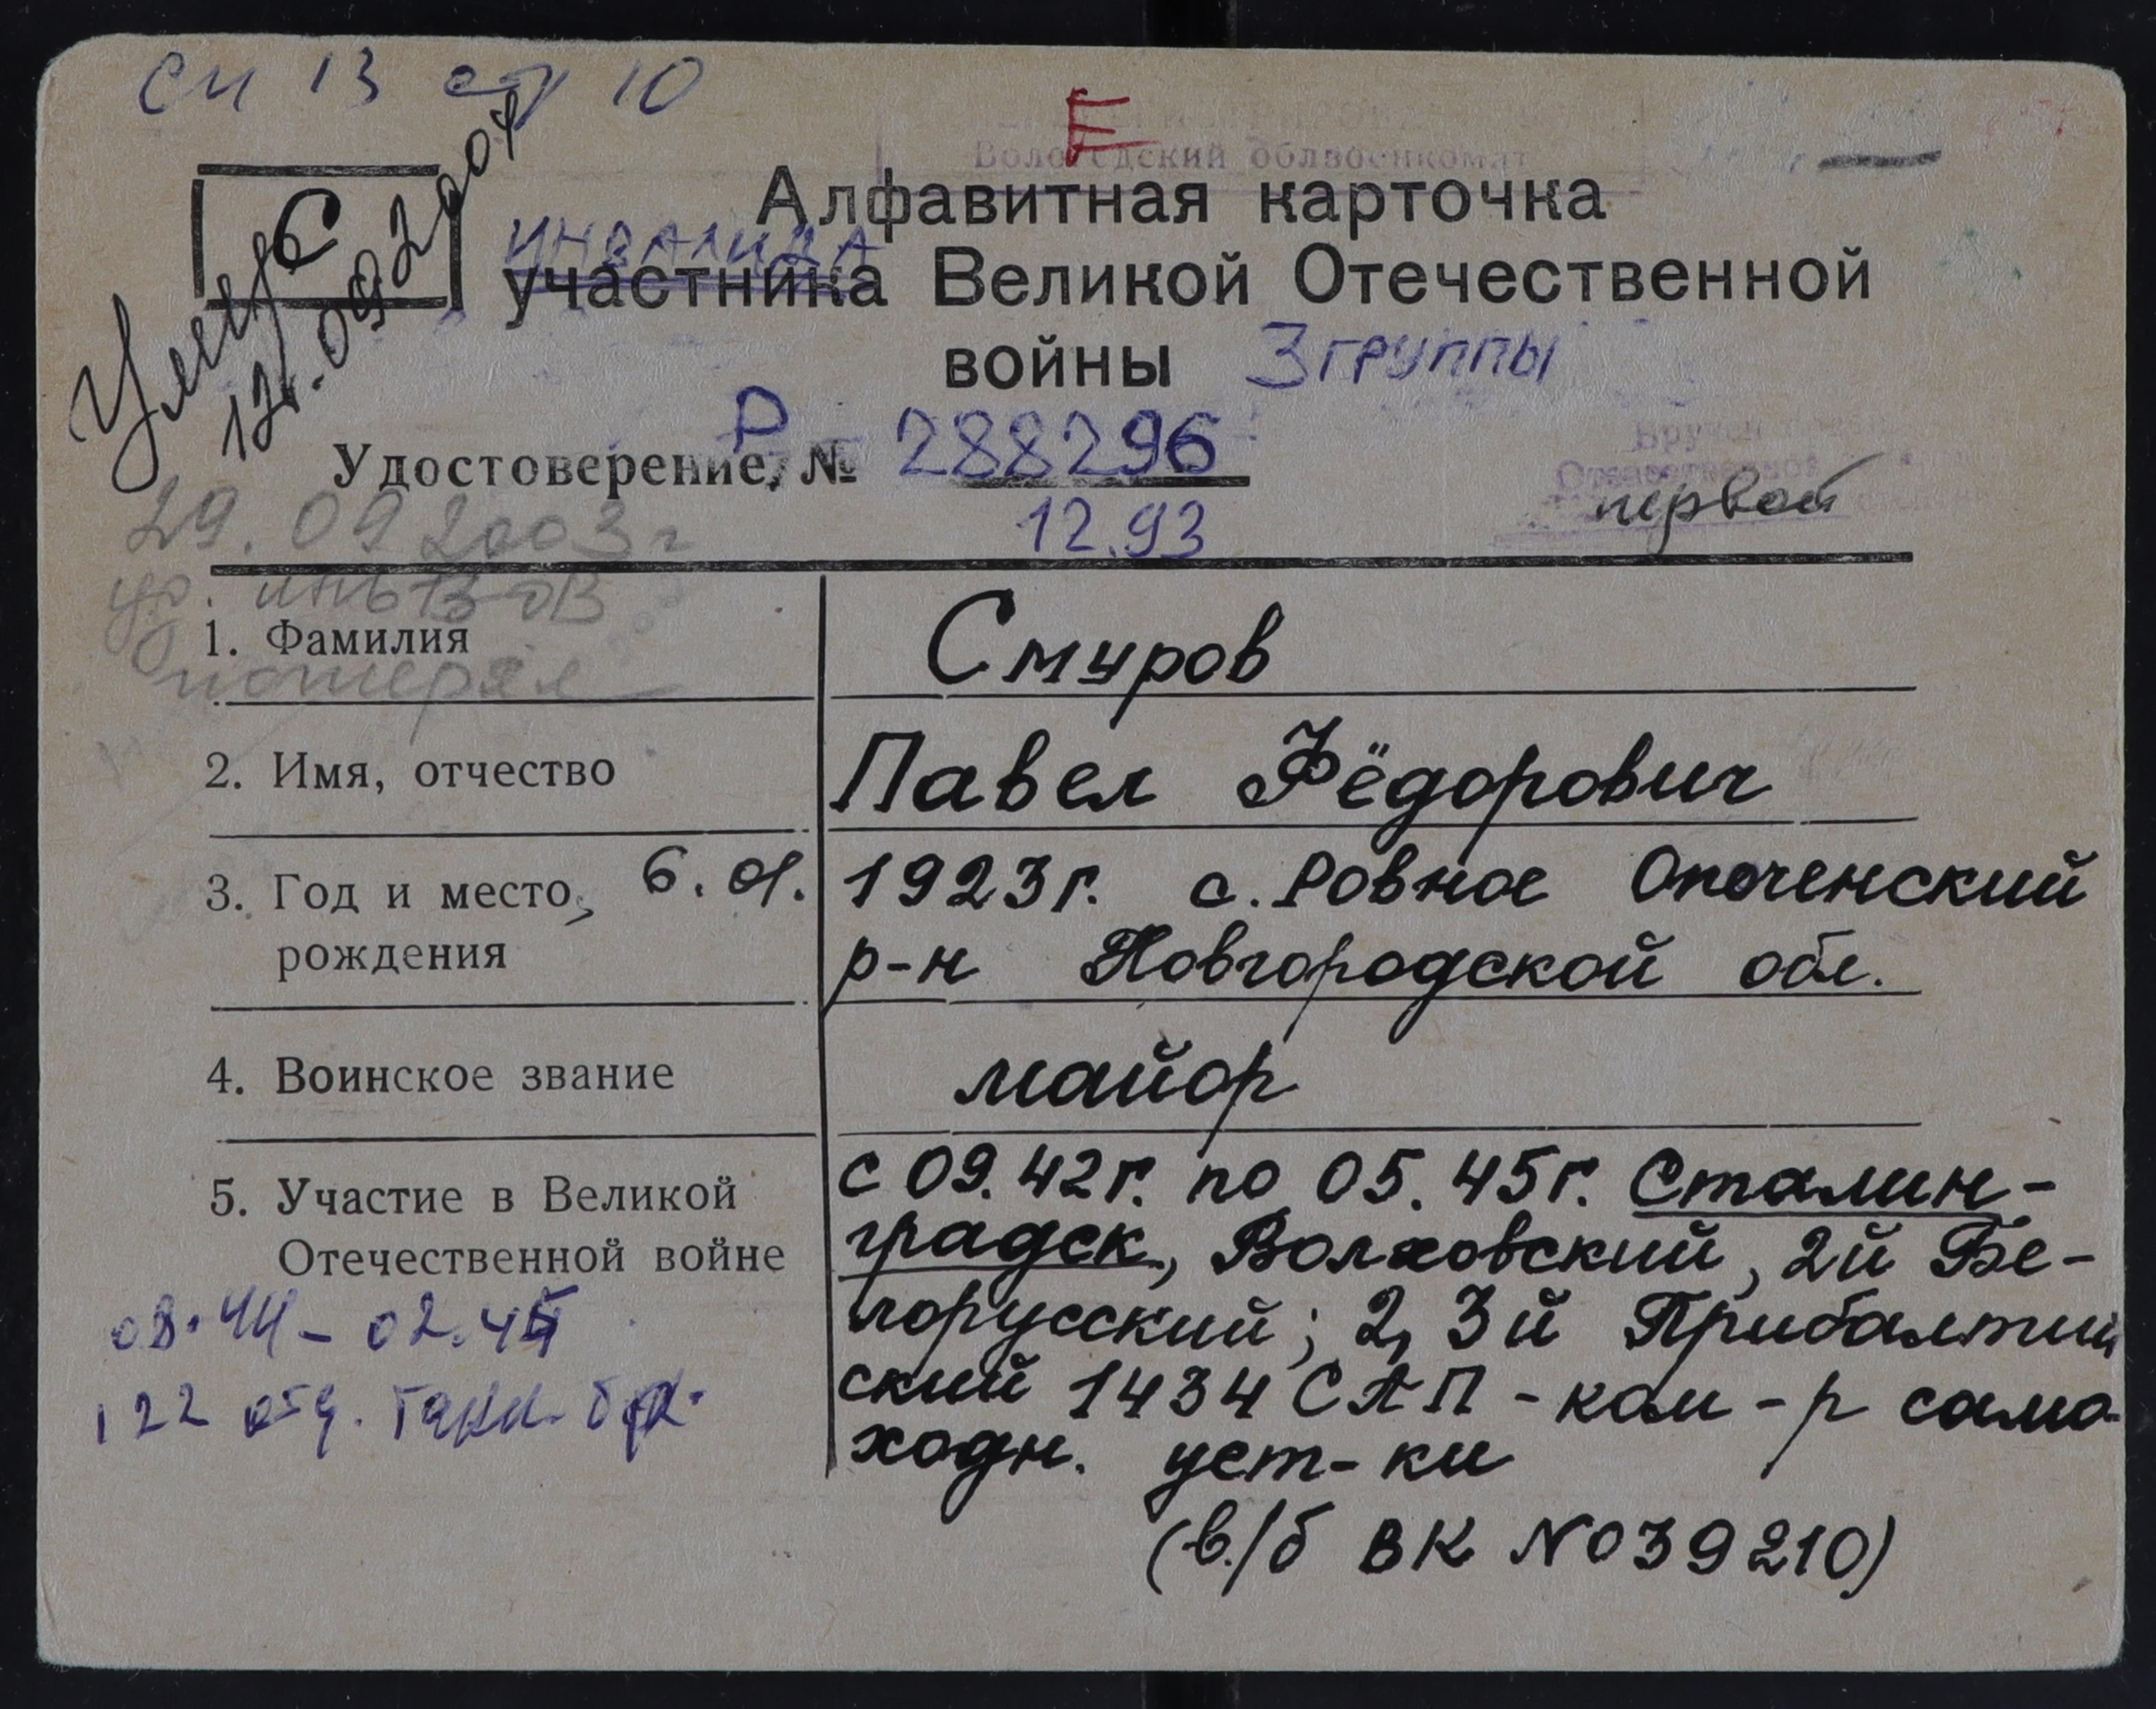 см 13 стр 10
Е
Вологодский облвоенкомат
С
Умер
13.09.2004
Алфавитная карточка
инвалида
участника Великой Отечественной
войны 3 группы
Удостоверение, Р № 288296
12.93
Вручен
Отечественной
первой
29.09 2003г
уд. инв ВОВ
потерял
1. Фамилия Смуров
2. Имя, отчество Павел Фёдорович
3. Год и место, 6.01. 1923г. с. Ровное Опоченский
рождения р-н Новгородской обл.
4. Воинское звание майор
5. Участие в Великой
Отечественной войне
с 09.42г. по 05.45г. Сталин-
градск., Волховский, 2й Бе-
лорусский; 2, 3й Прибалтий
ский 1434 САП - ком-р само-
ходн. уст-ки
(в./б ВК №039210)
08.44 - 02.45
122 отд. танк. бр.